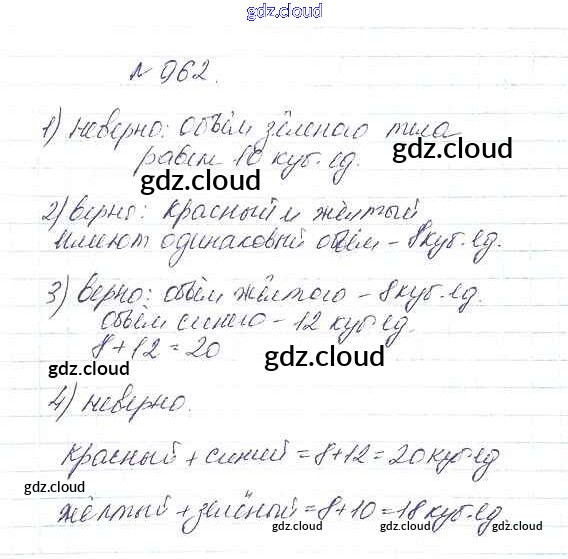 gdz.cloud
№ 962.
1) неверно: объём зелёного тела
равен 10 куб. ед.
gdz.cloud
gdz.cloud
2) верно: красный и жёлтый
имеют одинаковый объём – 8 куб. ед.
3) верно: объём жёлтого – 8 куб. ед.
объём синего – 12 куб. ед.
8 + 12 = 20
gdz.cloud
gdz.cloud
4) неверно.
красный + синий = 8 + 12 = 20 куб. ед
gdz.cloud
жёлтый + зелёный = 8 + 10 = 18 куб. ед.
gdz.cloud
gdz.cloud